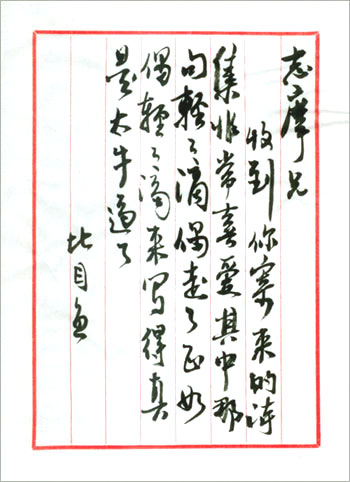 志摩兄
收到你寄来的诗
集非常喜爱其中那
句輕々滴偶走了正如
偶輕々滴来写得真
是太牛逼了
比目鱼